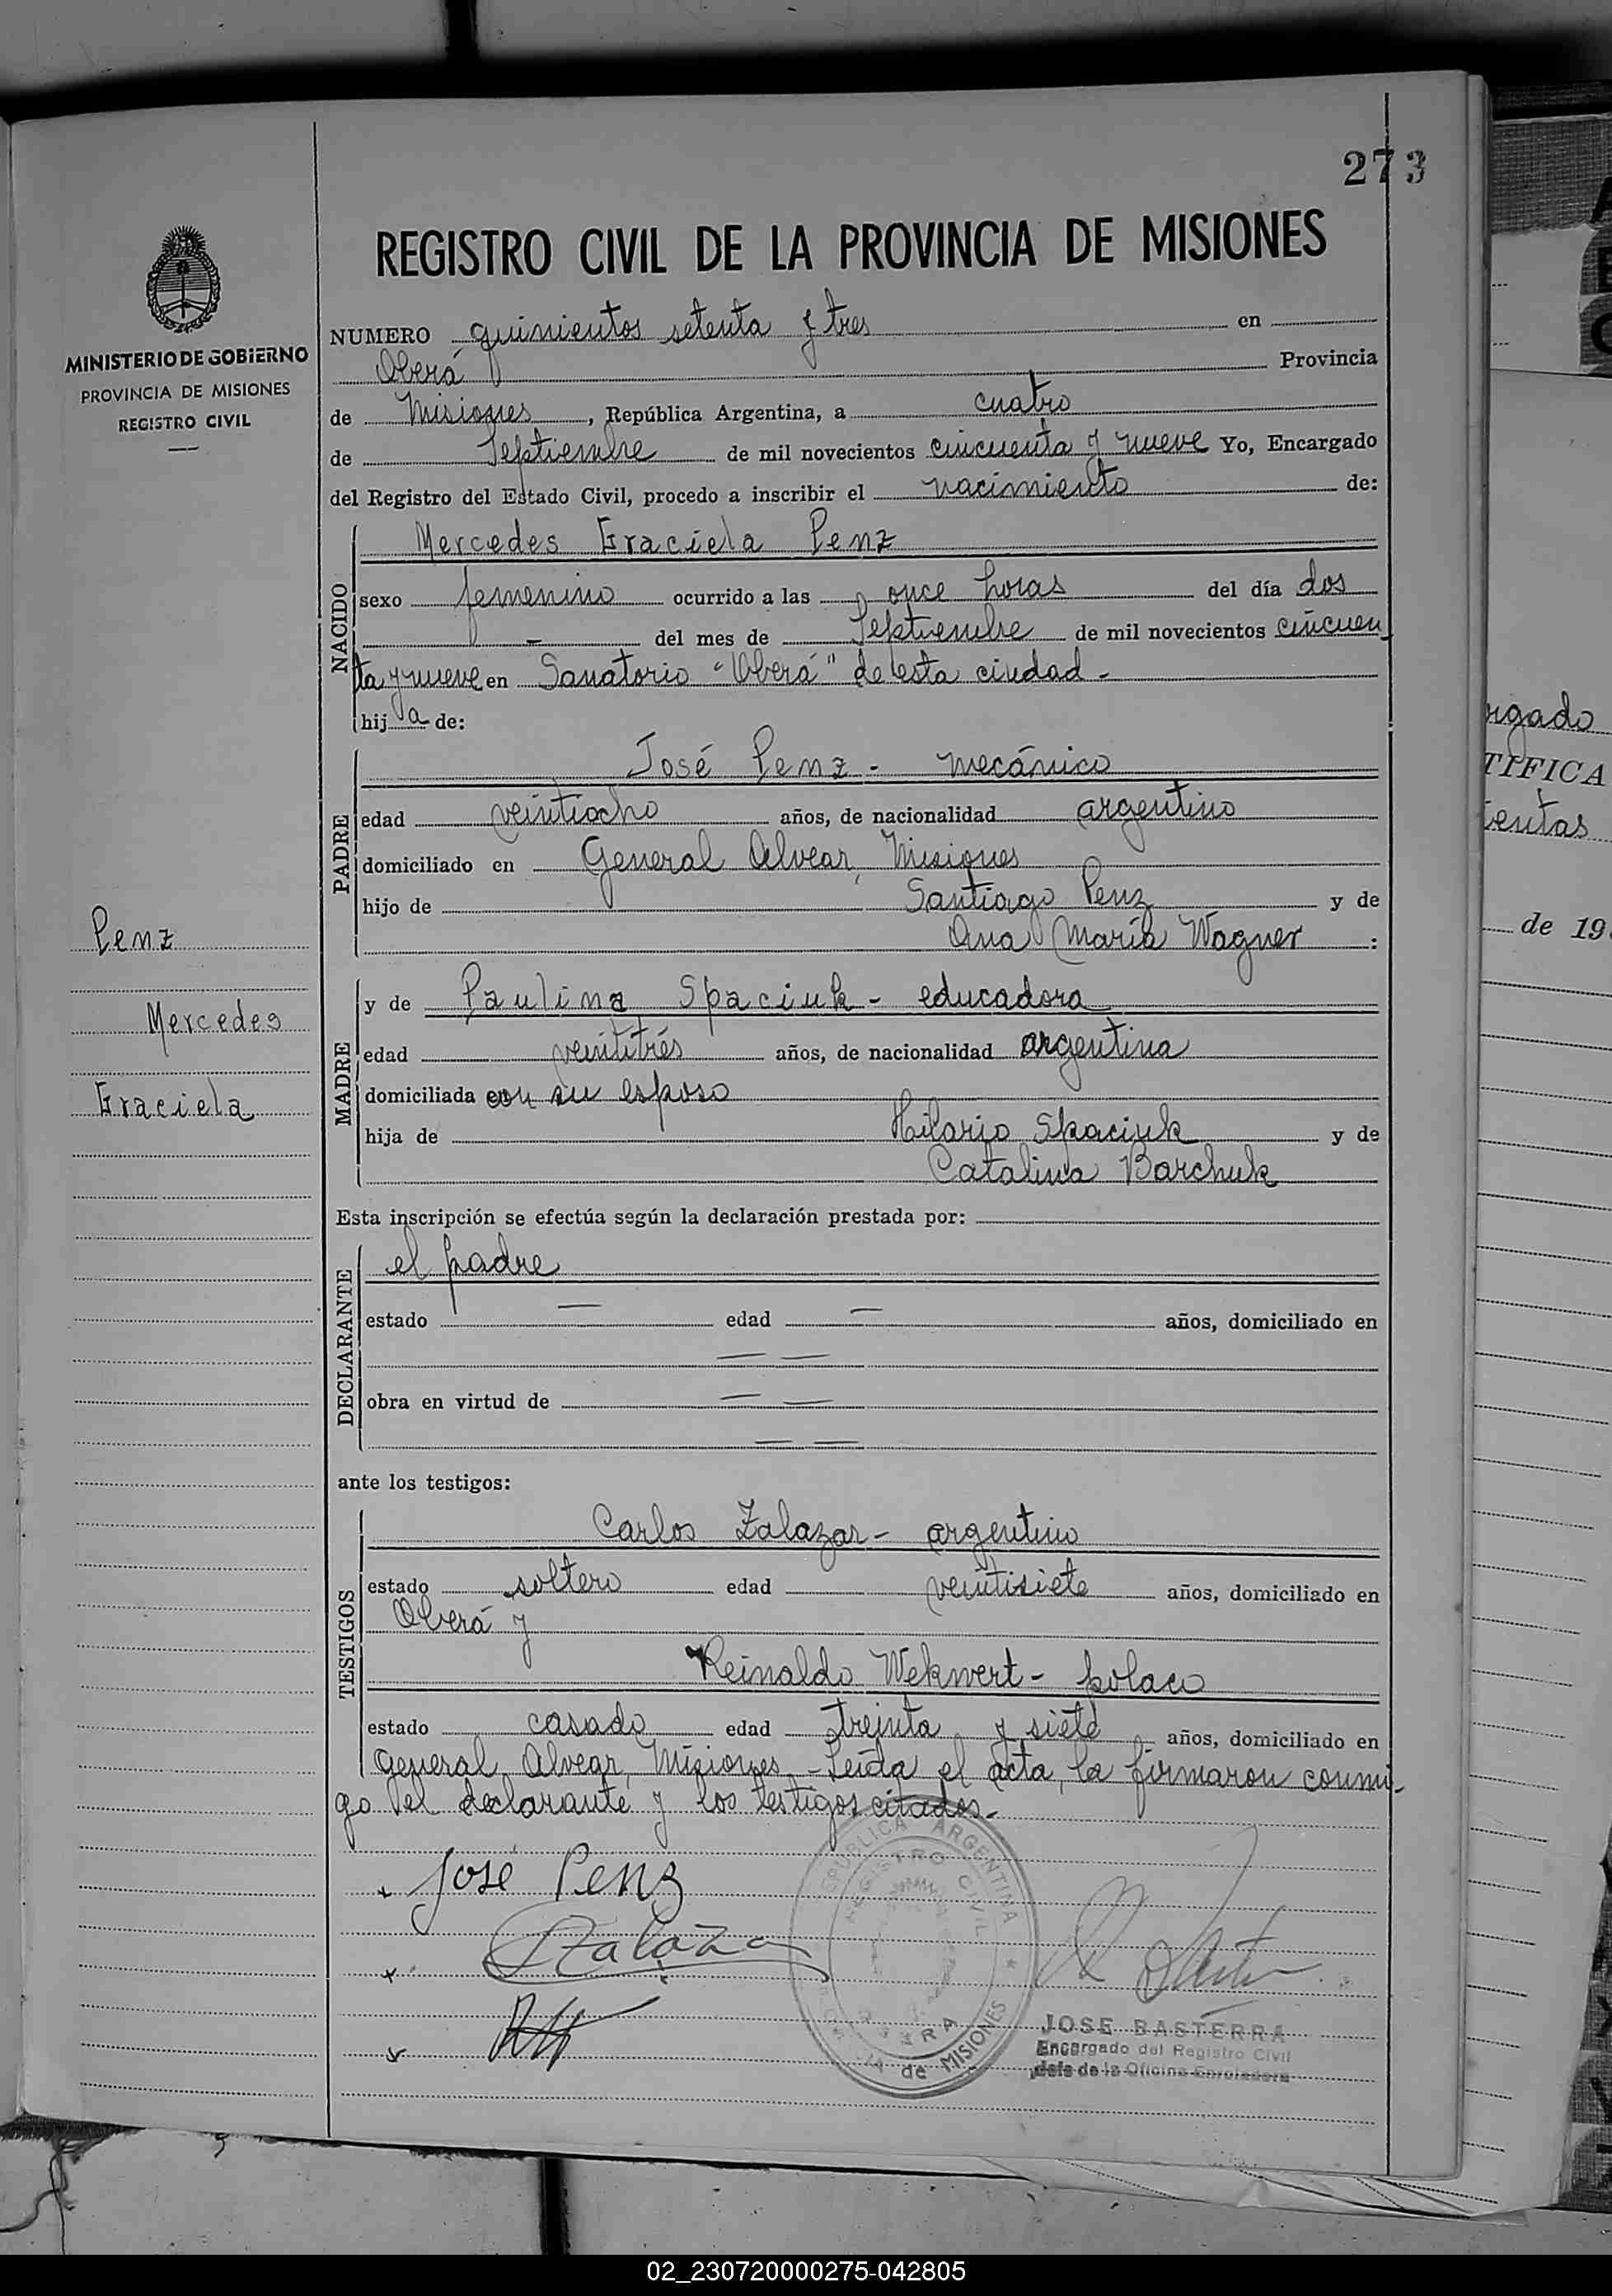 273
REGISTRO CIVIL DE LA PROVINCIA DE MISIONES
MINISTERIO DE GOBIERNO
PROVINCIA DE MISIONES
REGISTRO CIVIL
NUMERO quinientos setenta y tres en
Oberá Provincia
de Misiones, República Argentina, a cuatro
de Septiembre de mil novecientos cincuenta y nueve Yo, Encargado
del Registro del Estado Civil, procedo a inscribir el nacimiento de:
NACIDO
Mercedes Graciela Penz
sexo femenino ocurrido a las once horas del día dos
— del mes de Septiembre de mil novecientos cincuen
ta y nueve en Sanatorio "Oberá" de esta ciudad -
hija de:
PADRE
José Penz - mecánico
edad veintiocho años, de nacionalidad argentino
domiciliado en General Alvear, Misiones
hijo de Santiago Penz y de
Ana María Wagner :
MADRE
y de Paulina Spaciuk - educadora
edad veintitrés años, de nacionalidad argentina
domiciliada con su esposo
hija de Hilario Spaciuk y de
Catalina Barchuk
Penz
Mercedes
Graciela
Esta inscripción se efectúa según la declaración prestada por:
DECLARANTE
el padre
estado — edad — años, domiciliado en
— —
obra en virtud de — —
— —
ante los testigos:
TESTIGOS
Carlos Zalazar - argentino
estado soltero edad veintisiete años, domiciliado en
Oberá y
Reinaldo Wekwert - polaco
estado casado edad treinta y siete años, domiciliado en
General Alvear, Misiones - Leída el acta, la firmaron conmi-
go el declarante y los testigos citados.-
José Penz
Zalaza
REPUBLICA ARGENTINA
REGISTRO CIVIL
OBERA
de MISIONES
JOSE BASTERRA
Encargado del Registro Civil
Jefe de la Oficina Enroladora
rgado
TIFICA
ientas
de 19
02_230720000275-042805